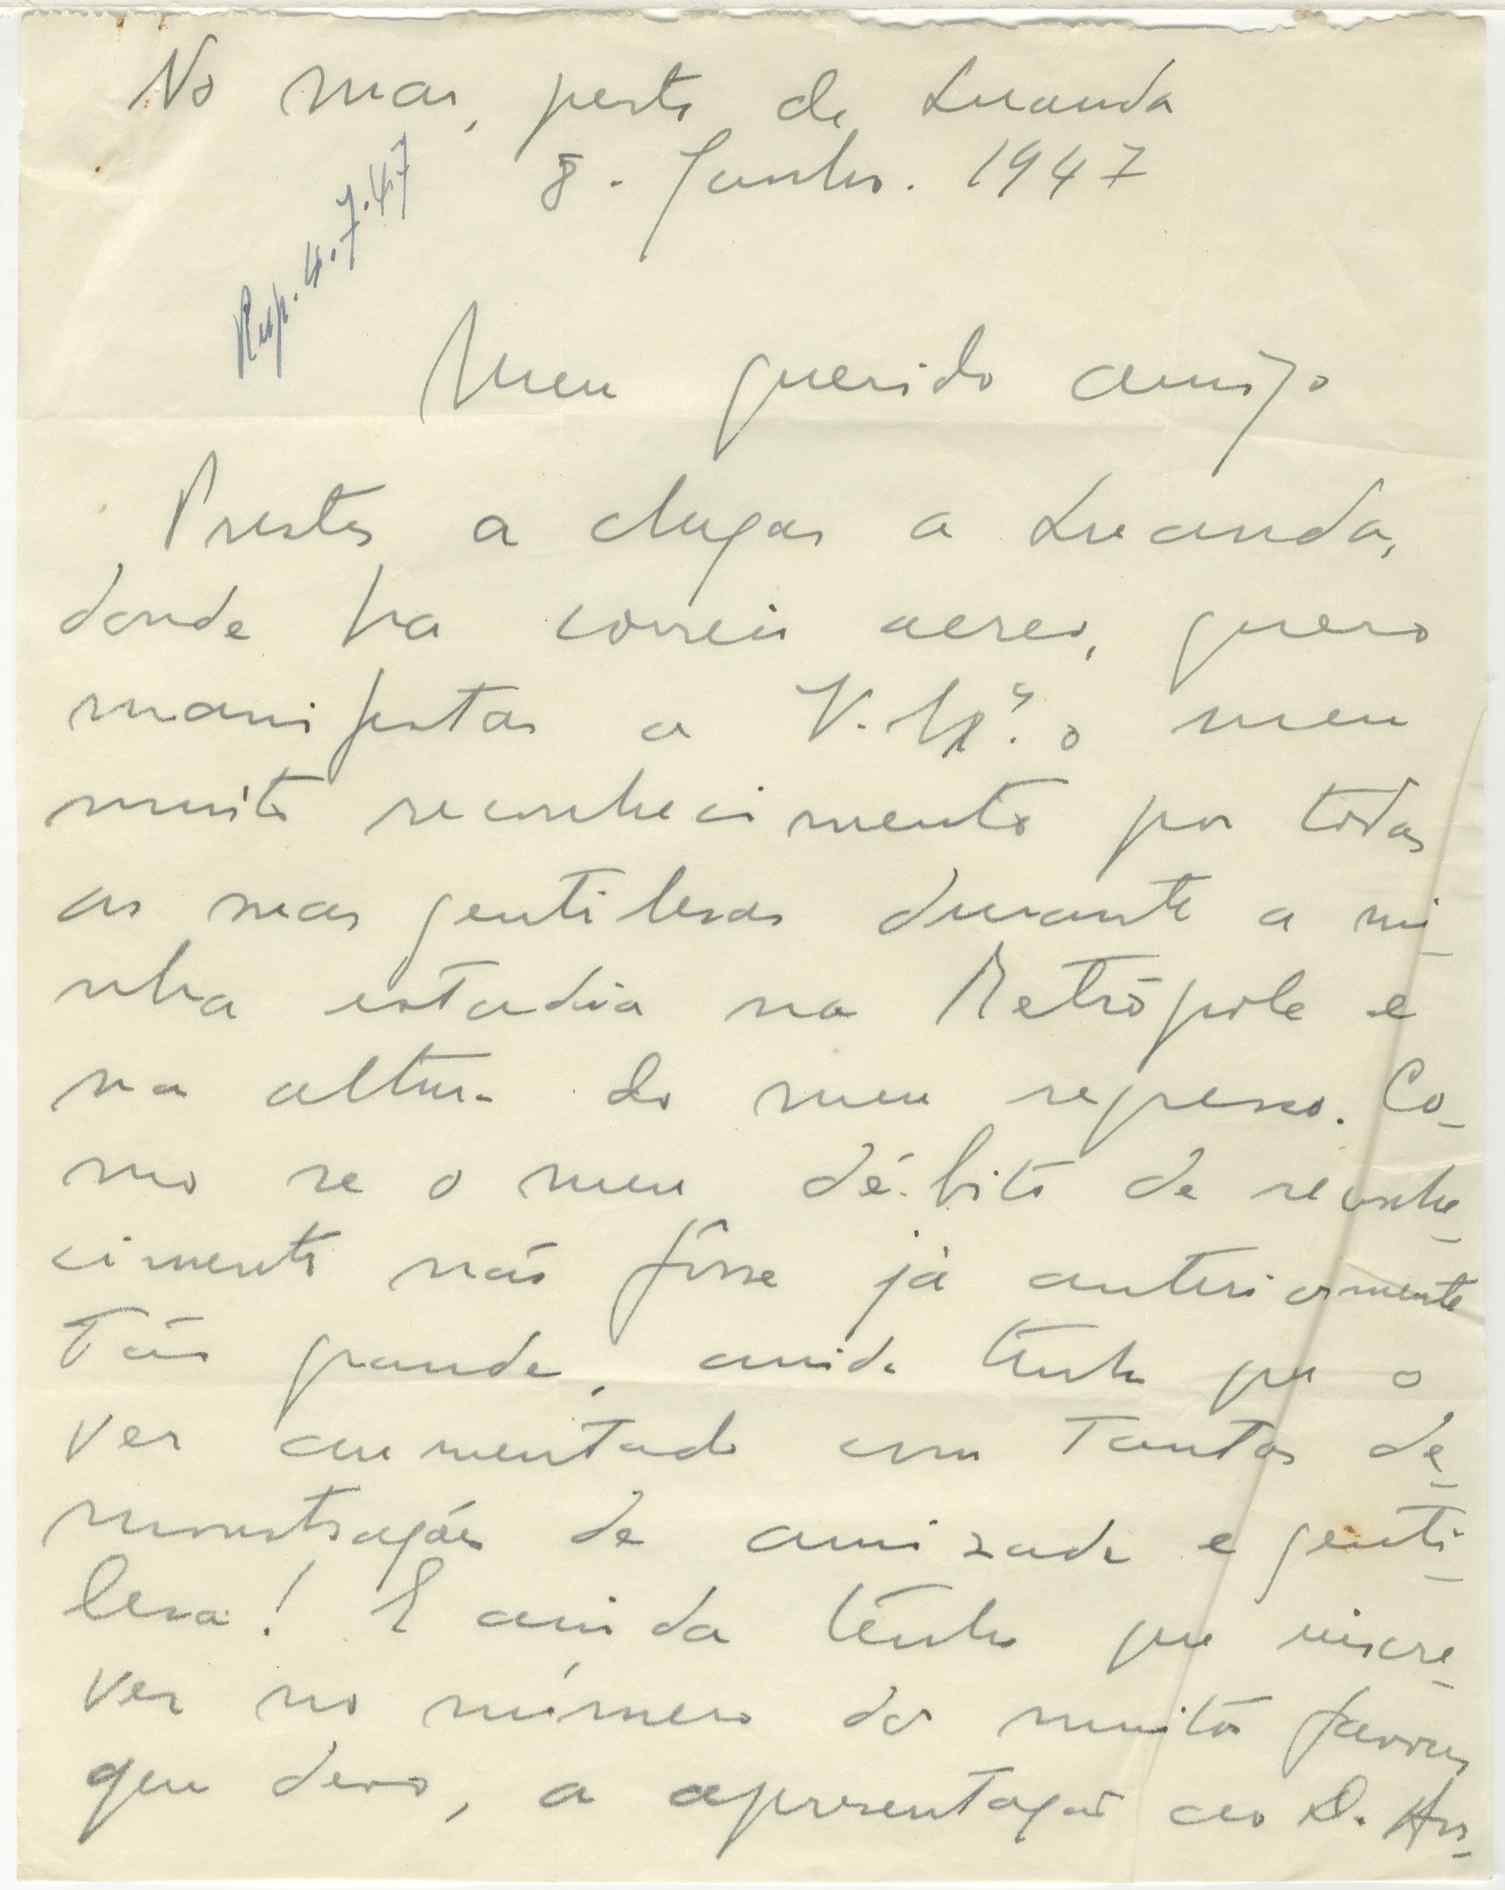 No mar, perto de Luanda
8. Junho. 1947
Resp. 4.7.47
Meu querido amigo
Prestes a chegar a Luanda,
donde ha correio aereo, quero
manifestar a V. Exª. o meu
muito reconhecimento por todas
as suas gentilesas durante a mi-
nha estadia na Metrópole e
na altura do meu regresso. Co-
mo se o meu débito de reconhe-
cimento não fôsse já anteriormente
tão grande, ainda tenho que o
ver aumentado com tantas de-
monstrações de amizade e genti-
lesa! E ainda tenho que inscre-
ver no número dos muitos favores
que devo, a apresentação ao D.